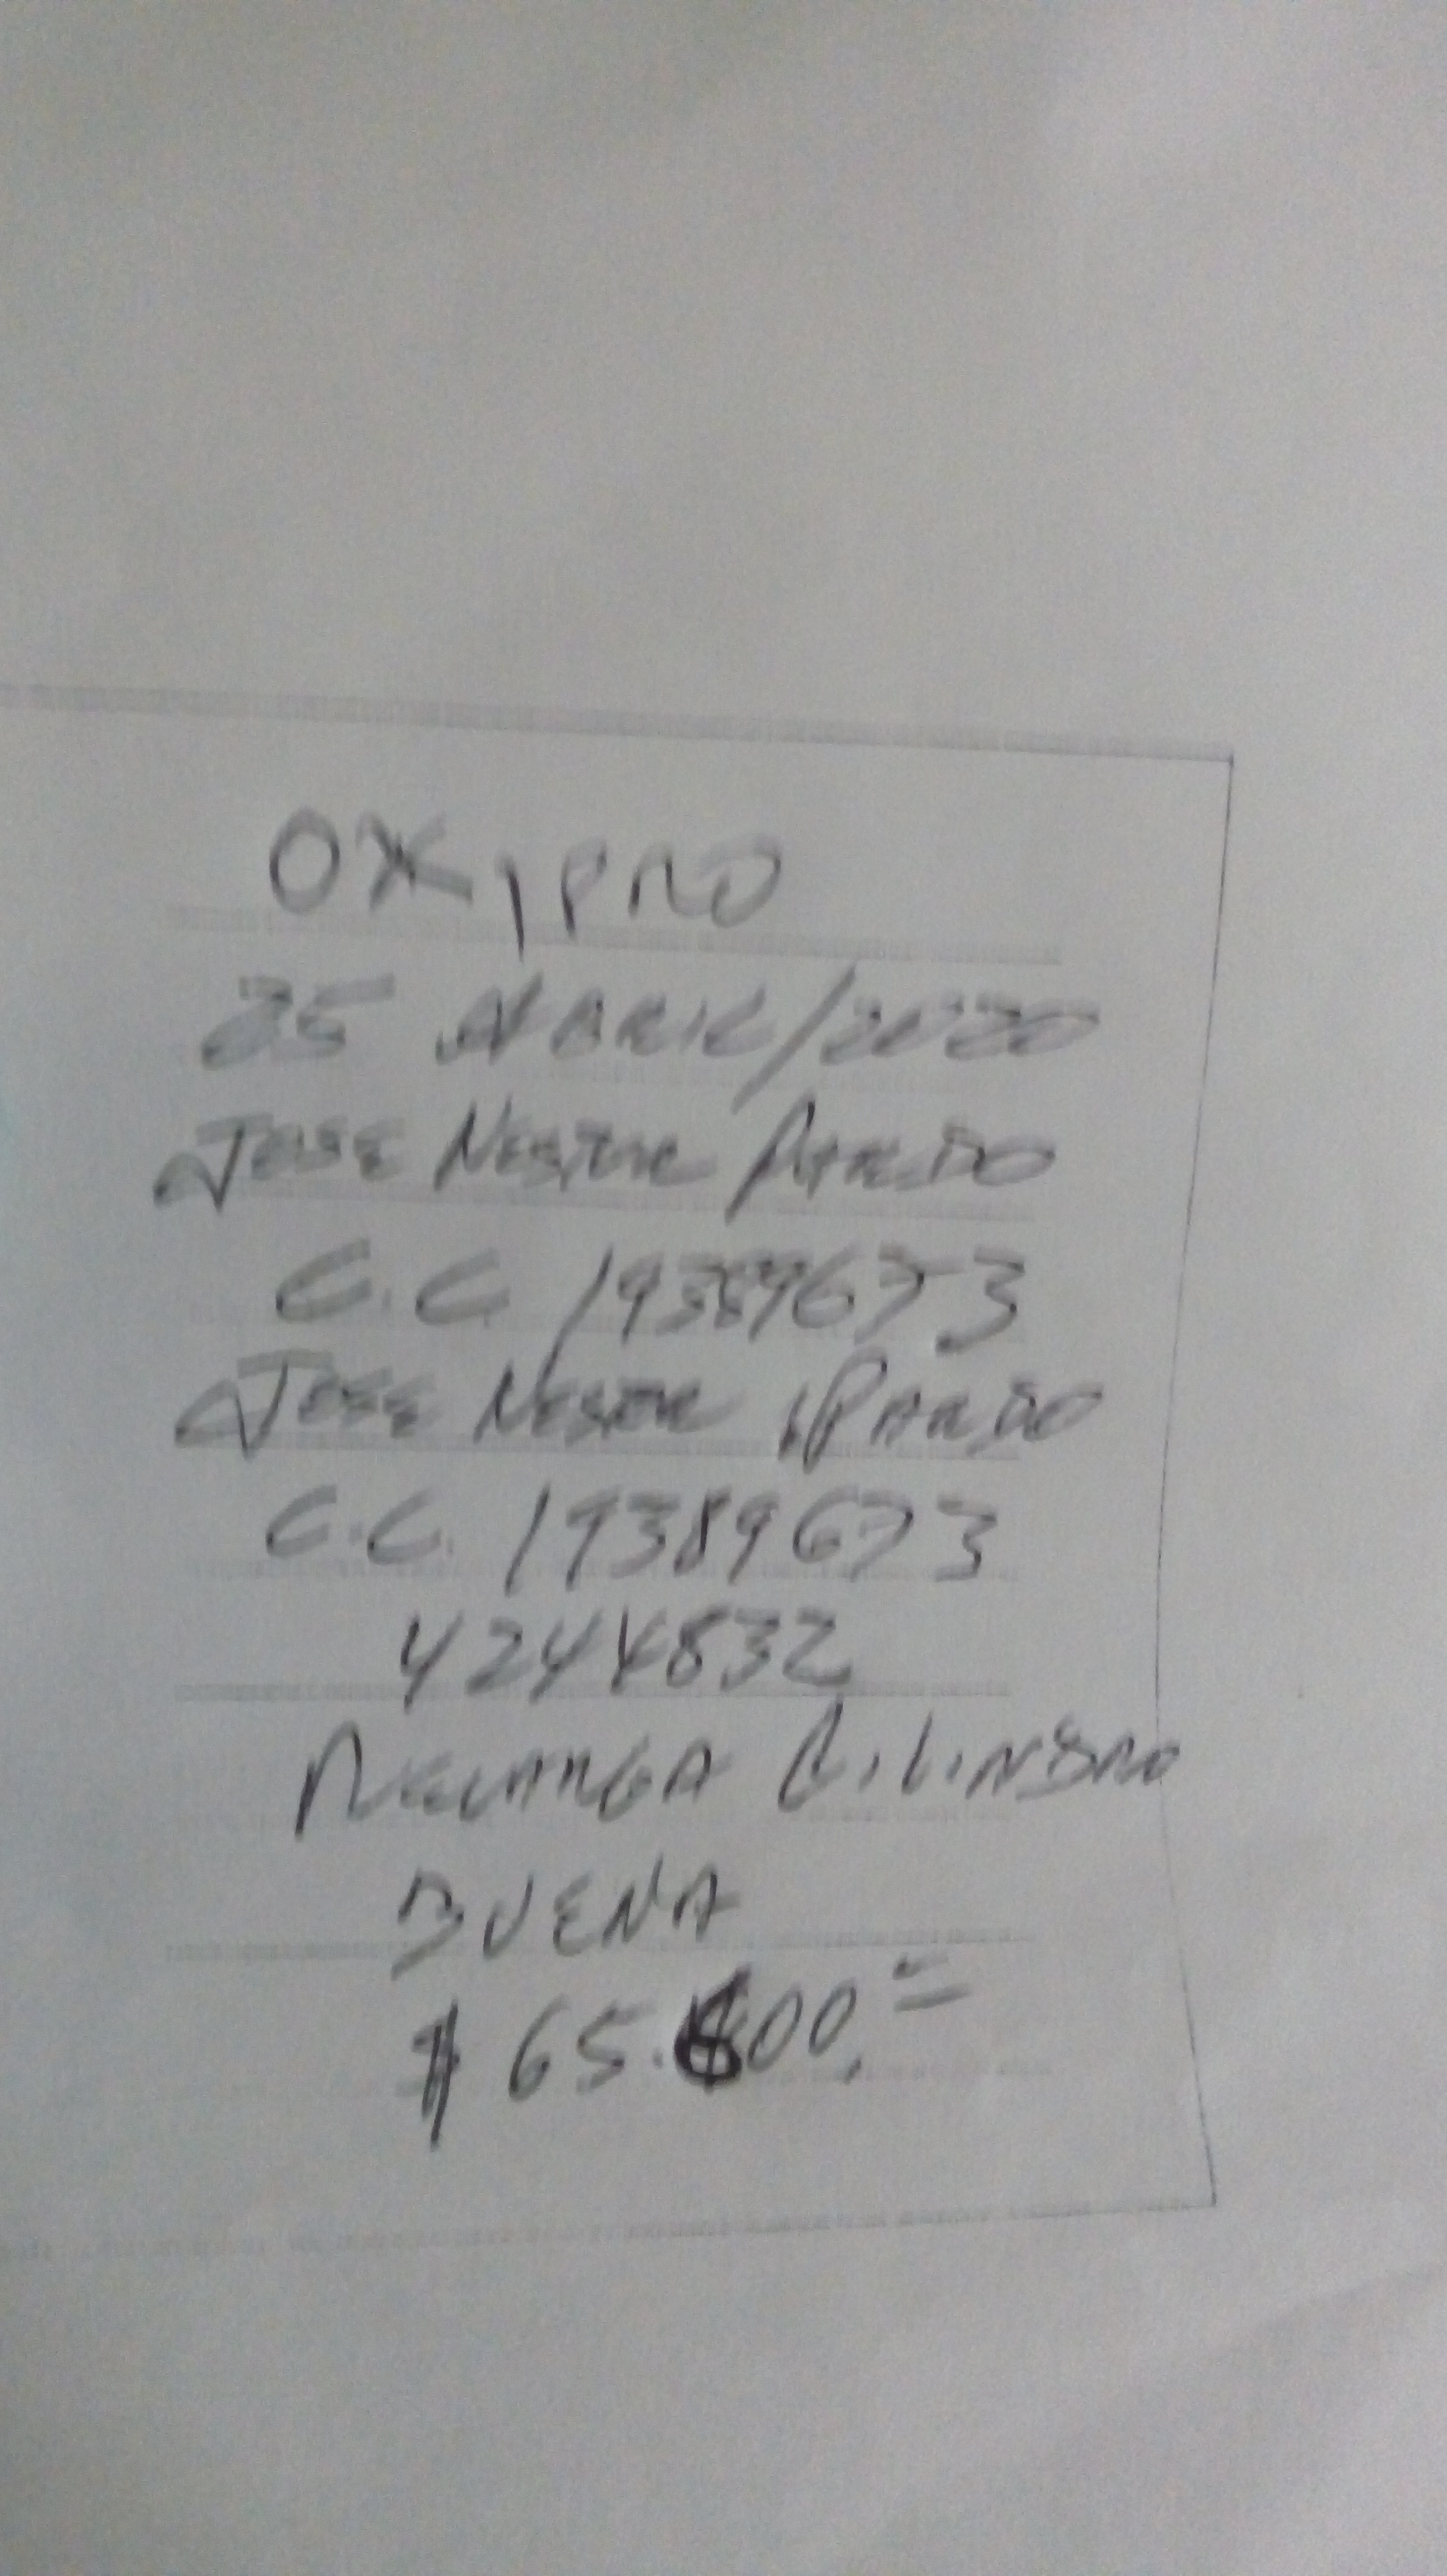 OXIPRO
25 ABRIL/2020
JOSE NESTOR PARDO
C.C 19389673
JOSE NESTOR PARDO
C.C. 19389673
4244832
RECARGA CILINDRO
BUENA
$ 65.600,=